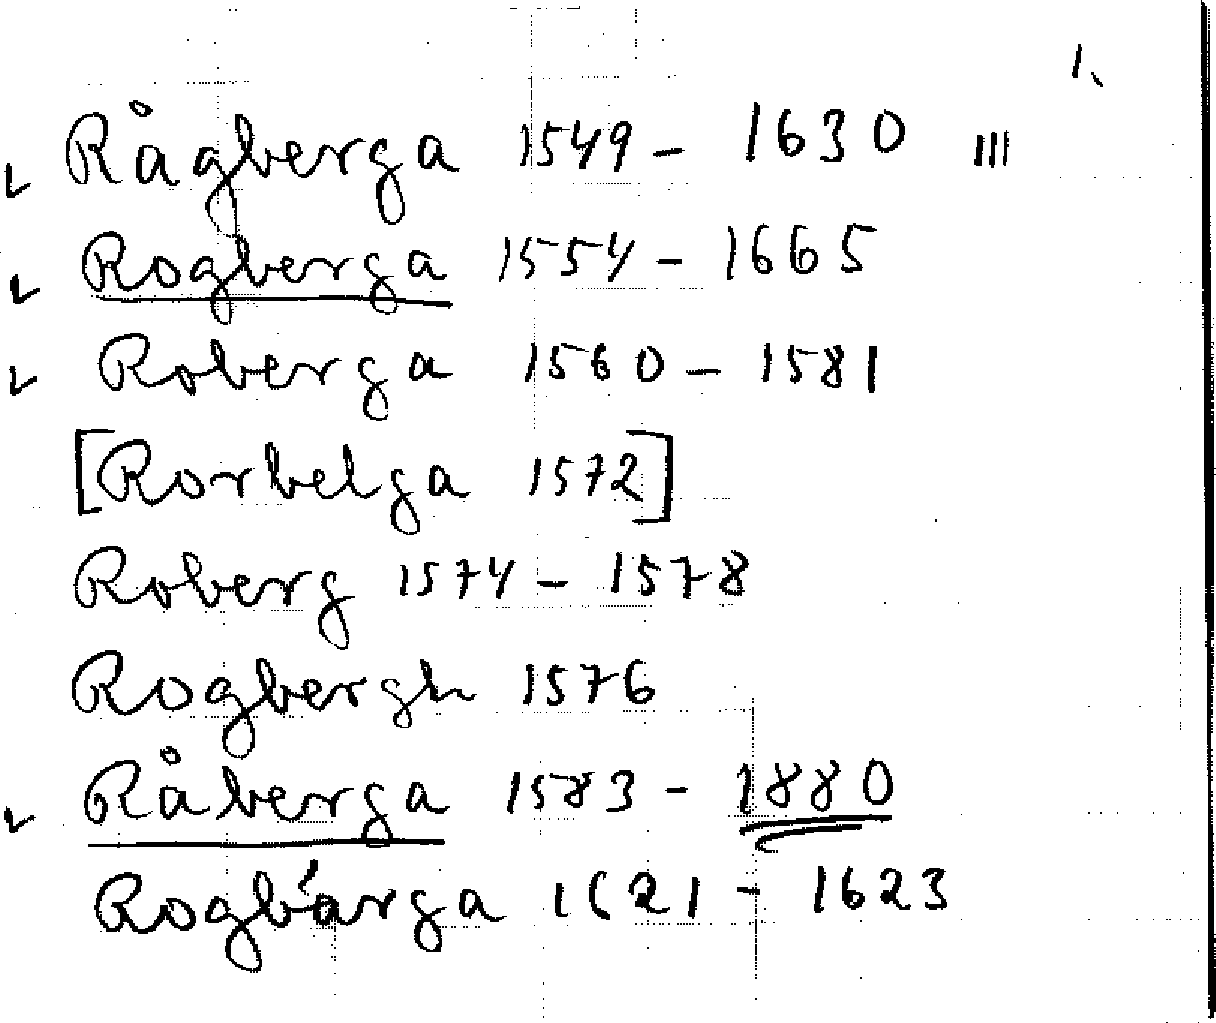 1.
Rågberga 1549 - 1630 III
Rogberga 1554 - 1665
Roberga 1560 - 1581
[Rorbelga 1572]
Roberg 1574 - 1578
Rogbergh 1576
Råberga 1583 - 1880
Rogbärga 1621 - 1623